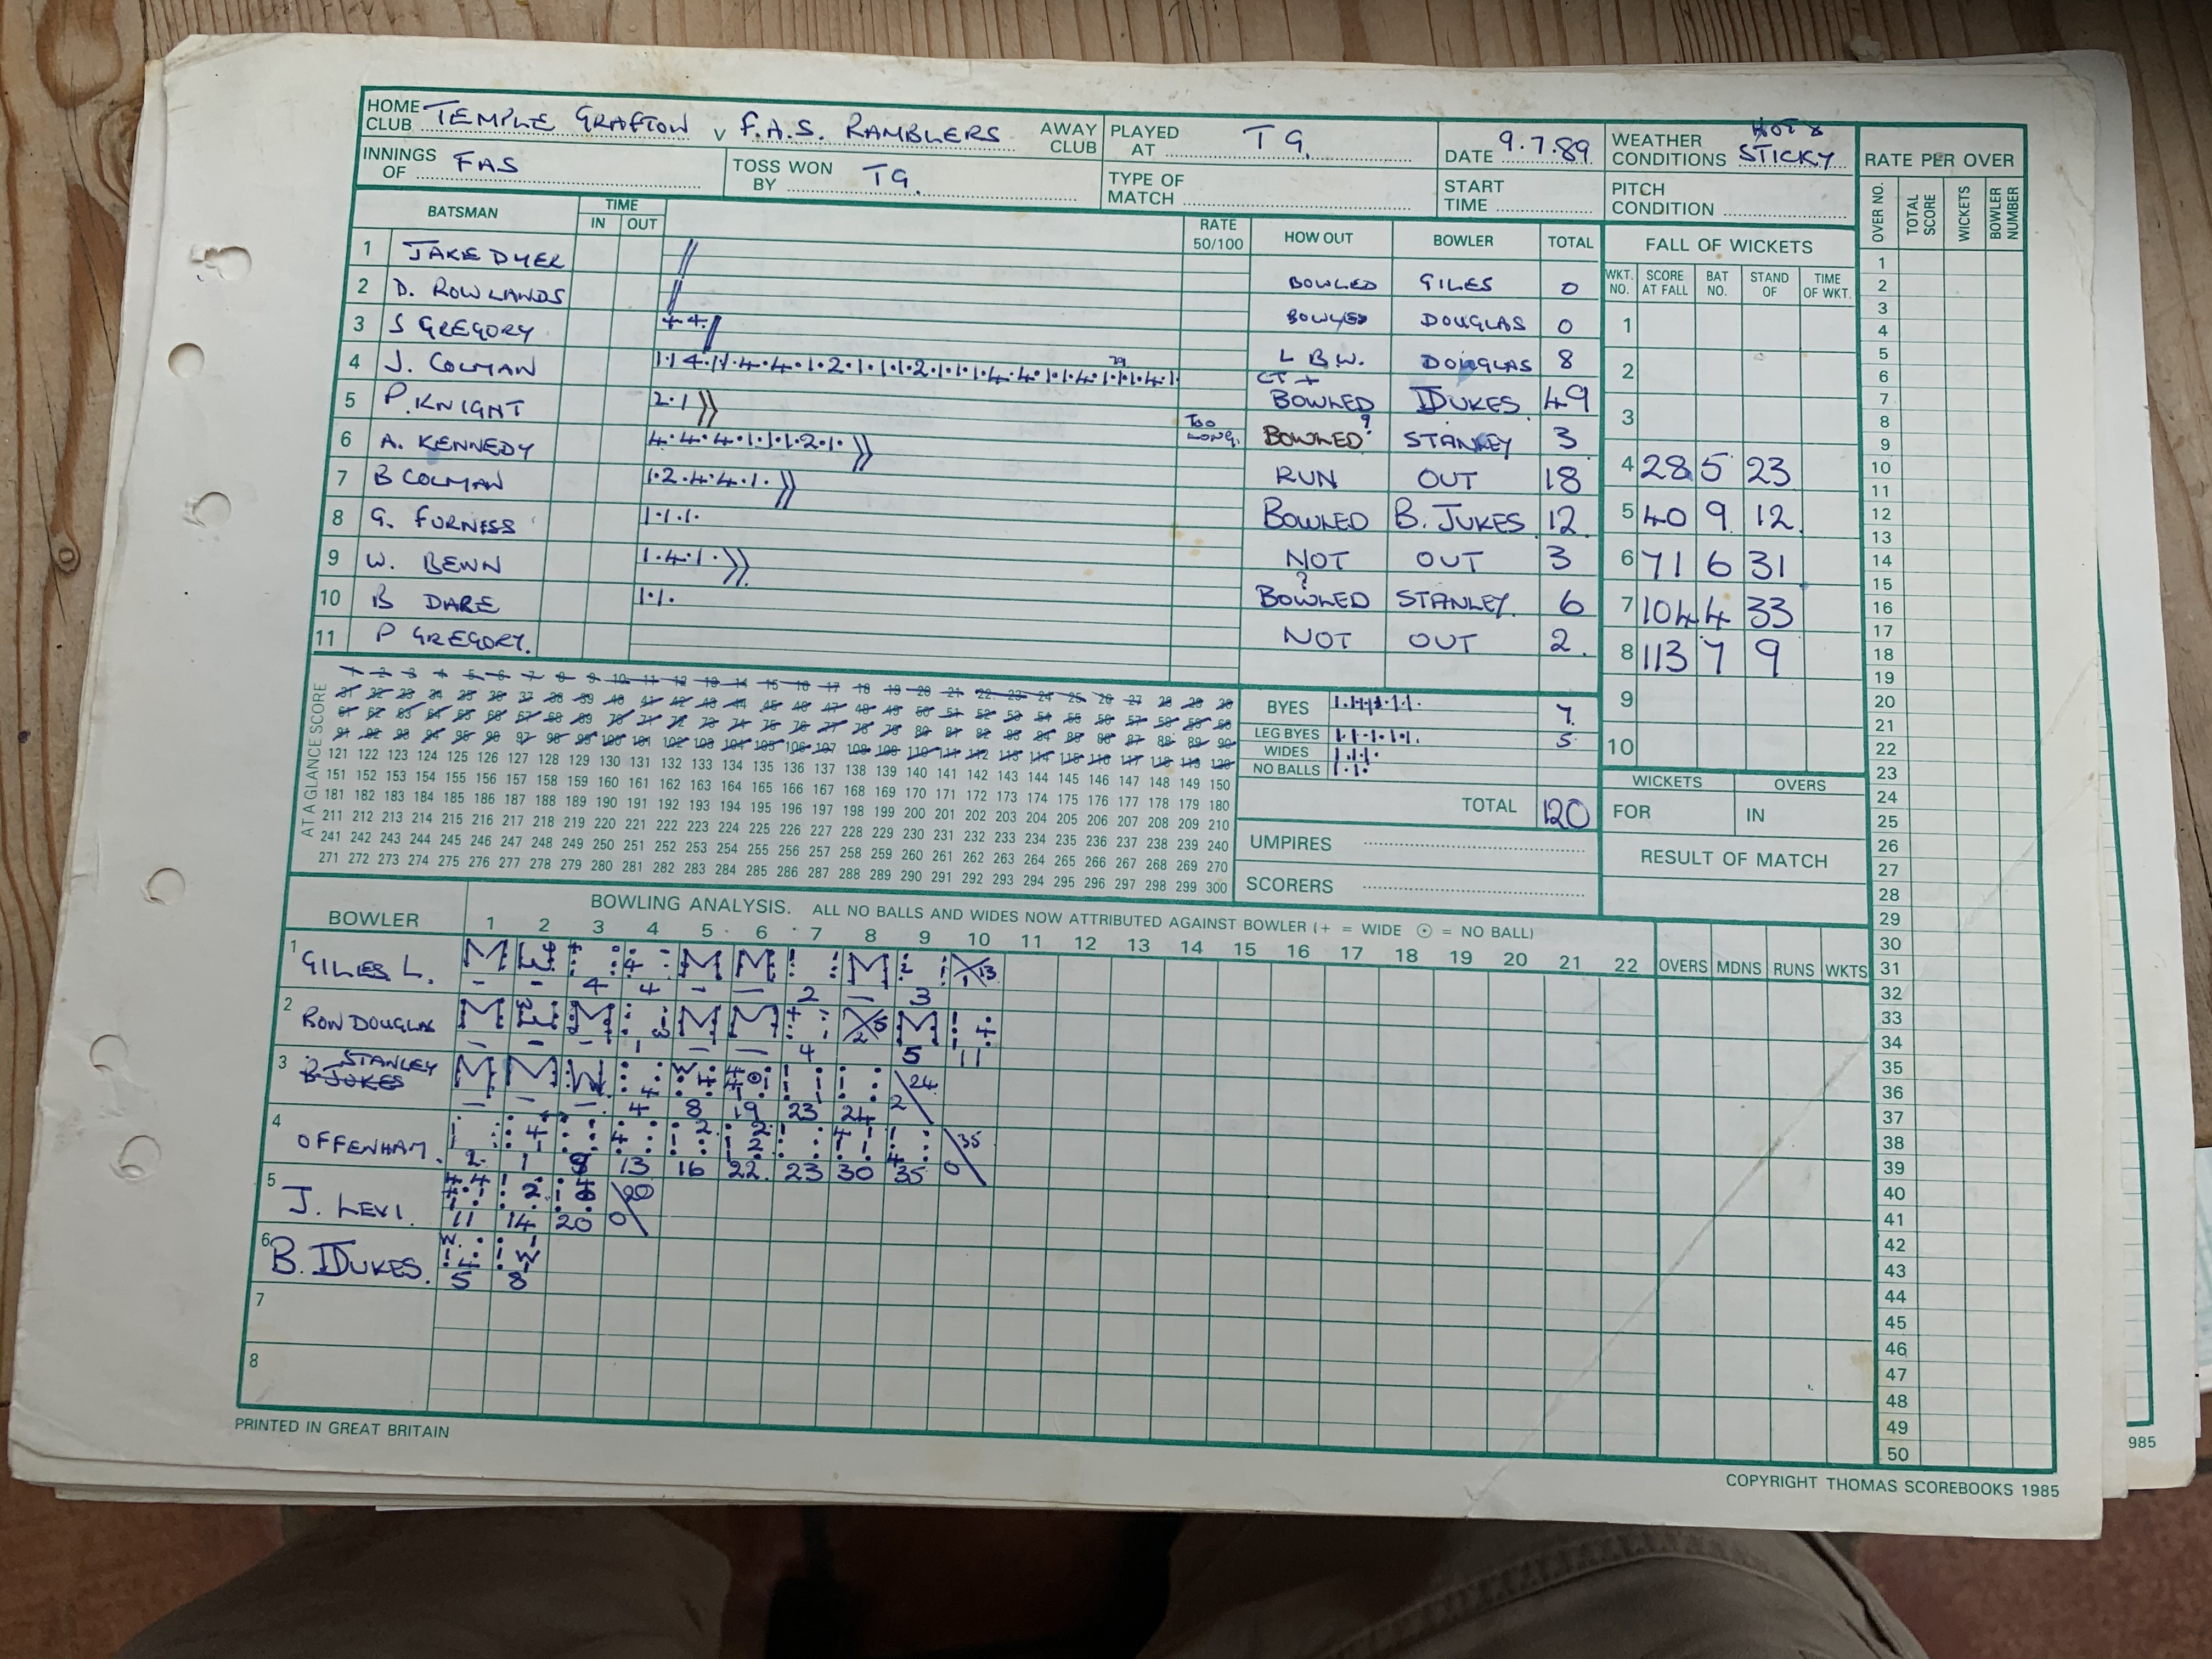 HOME CLUB TEMPLE GRAFTON V F.A.S. RAMBLERS AWAY CLUB PLAYED AT T G. DATE 9.7.89 WEATHER CONDITIONS HOT & STICKY
INNINGS OF FAS TOSS WON BY TG. TYPE OF MATCH START TIME PITCH CONDITION
RATE PER OVER
OVER NO. TOTAL SCORE WICKETS BOWLER NUMBER
BATSMAN TIME IN OUT RATE 50/100 HOW OUT BOWLER TOTAL
1 JAKE DYER BOWLED GILES 0
2 D. ROWLANDS BOWLED DOUGLAS 0
3 S GREGORY 4 4 L B.W. DOUGLAS 8
4 J. COLMAN CT + BOWLED DUKES 49
5 P. KNIGHT 2.1 TOO LONG. BOWLED? STANLEY 3
6 A. KENNEDY 4.4.4.1.1.1.2.1. RUN OUT 18
7 B COLMAN 1.2.4.4.1. BOWLED B. JUKES 12
8 G. FURNESS 1.1.1. NOT OUT 3
9 W. BENN 1.4.1. BOWLED ? STANLEY. 6
10 B DARE 1.1. NOT OUT 2.
11 P GREGORY.
FALL OF WICKETS
WKT. NO. SCORE AT FALL BAT NO. STAND OF TIME OF WKT.
1
2
3
4 28 5 23
5 40 9. 12.
6 71 6 31
7 104 4 33
8 113 7 9
9
10
WICKETS OVERS
FOR IN
RESULT OF MATCH
AT A GLANCE SCORE
1 2 3 4 5 6 7 8 9 10 11 12 13 14 15 16 17 18 19 20 21 22 23 24 25 26 27 28 29 30
31 32 33 34 35 36 37 38 39 40 41 42 43 44 45 46 47 48 49 50 51 52 53 54 55 56 57 58 59 60
61 62 63 64 65 66 67 68 69 70 71 72 73 74 75 76 77 78 79 80 81 82 83 84 85 86 87 88 89 90
91 92 93 94 95 96 97 98 99 100 101 102 103 104 105 106 107 108 109 110 111 112 113 114 115 116 117 118 119 120
121 122 123 124 125 126 127 128 129 130 131 132 133 134 135 136 137 138 139 140 141 142 143 144 145 146 147 148 149 150
151 152 153 154 155 156 157 158 159 160 161 162 163 164 165 166 167 168 169 170 171 172 173 174 175 176 177 178 179 180
181 182 183 184 185 186 187 188 189 190 191 192 193 194 195 196 197 198 199 200 201 202 203 204 205 206 207 208 209 210
211 212 213 214 215 216 217 218 219 220 221 222 223 224 225 226 227 228 229 230 231 232 233 234 235 236 237 238 239 240
241 242 243 244 245 246 247 248 249 250 251 252 253 254 255 256 257 258 259 260 261 262 263 264 265 266 267 268 269 270
271 272 273 274 275 276 277 278 279 280 281 282 283 284 285 286 287 288 289 290 291 292 293 294 295 296 297 298 299 300
BYES 7.
LEG BYES 5
WIDES 1.1.1.
NO BALLS 1.1.
TOTAL 120
UMPIRES
SCORERS
BOWLER BOWLING ANALYSIS. ALL NO BALLS AND WIDES NOW ATTRIBUTED AGAINST BOWLER (+ = WIDE ⊙ = NO BALL)
1 2 3 4 5 6 7 8 9 10 11 12 13 14 15 16 17 18 19 20 21 22 OVERS MDNS RUNS WKTS
1 GILES L. M W M M M
- - 4 4 - - 2 - 3 1 13
2 RON DOUGLAS M M M M M
- - - 1 - - 4 2 5 5 11
3 STANLEY B JUKES M M W
- - - 4 8 19 23 24 2 24
4 OFFENHAM.
2 1 9 13 16 22. 23 30 35 0 35
5 J. LEVI.
11 14 20 0 20
6 B. DUKES.
5 8
7
8
1
2
3
4
5
6
7
8
9
10
11
12
13
14
15
16
17
18
19
20
21
22
23
24
25
26
27
28
29
30
31
32
33
34
35
36
37
38
39
40
41
42
43
44
45
46
47
48
49
50
PRINTED IN GREAT BRITAIN
COPYRIGHT THOMAS SCOREBOOKS 1985
985